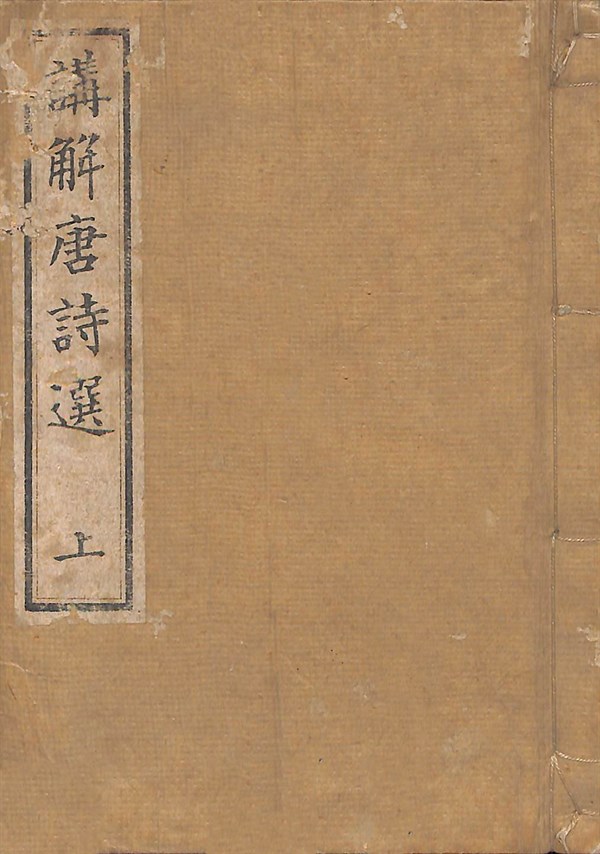 講解唐詩選 上